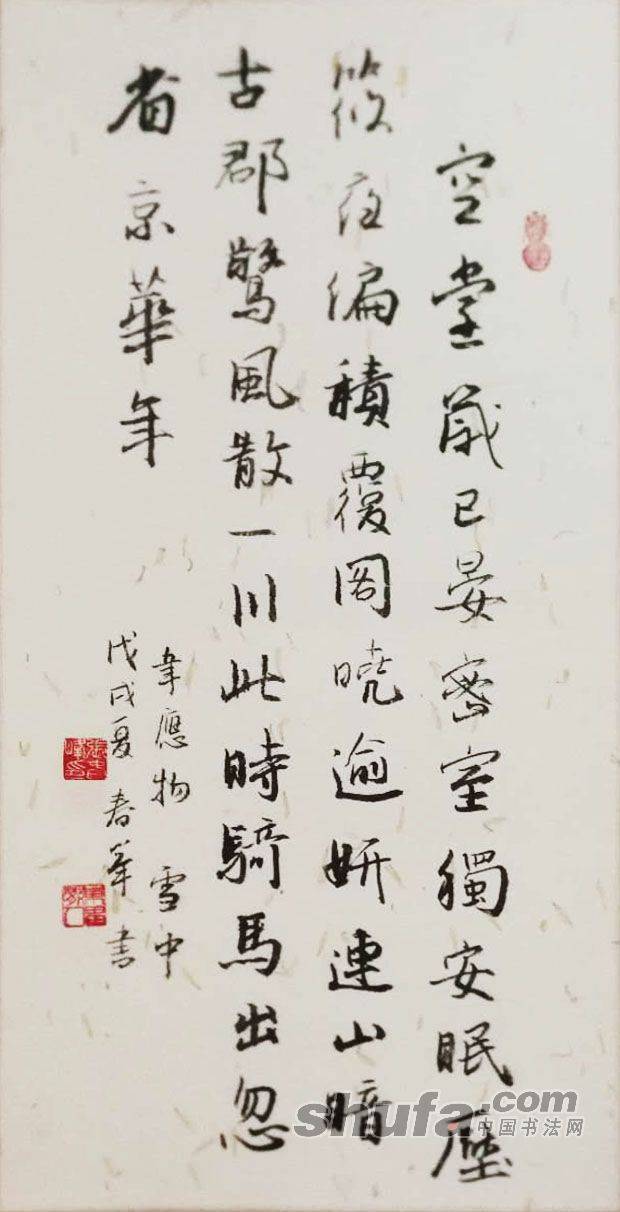 空堂歲已晏密室獨安眠壓
筱夜偏積覆閣曉逾妍連山暗
古郡驚風散一川此時騎馬出忽
省京華年
韋應物 雪中
戊戌夏 春峯書
shufa.com
中国书法网